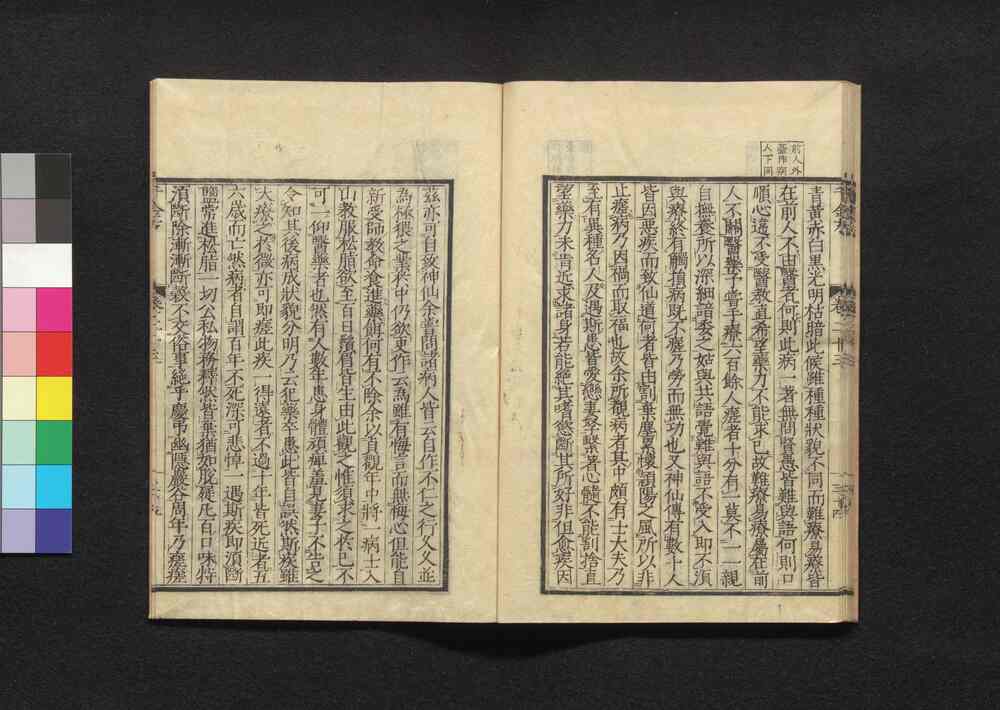 前人外
臺作病
人下同
青黃赤白黑光明枯暗此候雖種種狀貌不同而難療易療皆
在前人不由醫者何則此病一著無問賢愚皆難與語何則口
順心違不受醫教直希望藥力不能求己故難療易療屬在前
人不關醫藥予嘗手療六百餘人瘥者十分有一莫不一一親
自撫養所以深細諳委之姑與共語覺難與語不受入即不須
與療終有觸損病既不瘥乃勞而無功也又神仙傳有數十人
皆因惡疾而致仙道何者皆由割棄塵累懷潁陽之風所以非
止瘥病乃因禍而取福也故余所覩病者其中頗有士大夫乃
至有異種名人及遇斯患皆愛戀妻孥繫著心髓不能割捨直
望藥力未肯近求諸身若能絕其嗜慾斷其所好非但愈疾因
茲亦可自致神仙余嘗問諸病人皆云自作不仁之行久久並
為極猥之業於中仍欲更作云為雖有悔言而無悔心但能自
新受師教命食進藥餌何有不除余以貞觀年中將一病士入
山教服松脂欲至百日鬚眉皆生由此觀之惟須求之於己不
可一仰醫藥者也然有人數年患身體頑痺羞見妻子不告之
令知其後病成狀貌分明乃云犯藥卒患此皆自誤然斯疾雖
大療之於微亦可即瘥此疾一得遠者不過十年皆死近者五
六歲而亡然病者自謂百年不死深可悲悼一遇斯疾即須斷
鹽常進松脂一切公私物務釋然皆棄猶如脫屣凡百口味特
須斷除漸漸斷穀不交俗事絕乎慶弔幽隱巖谷周年乃瘥瘥